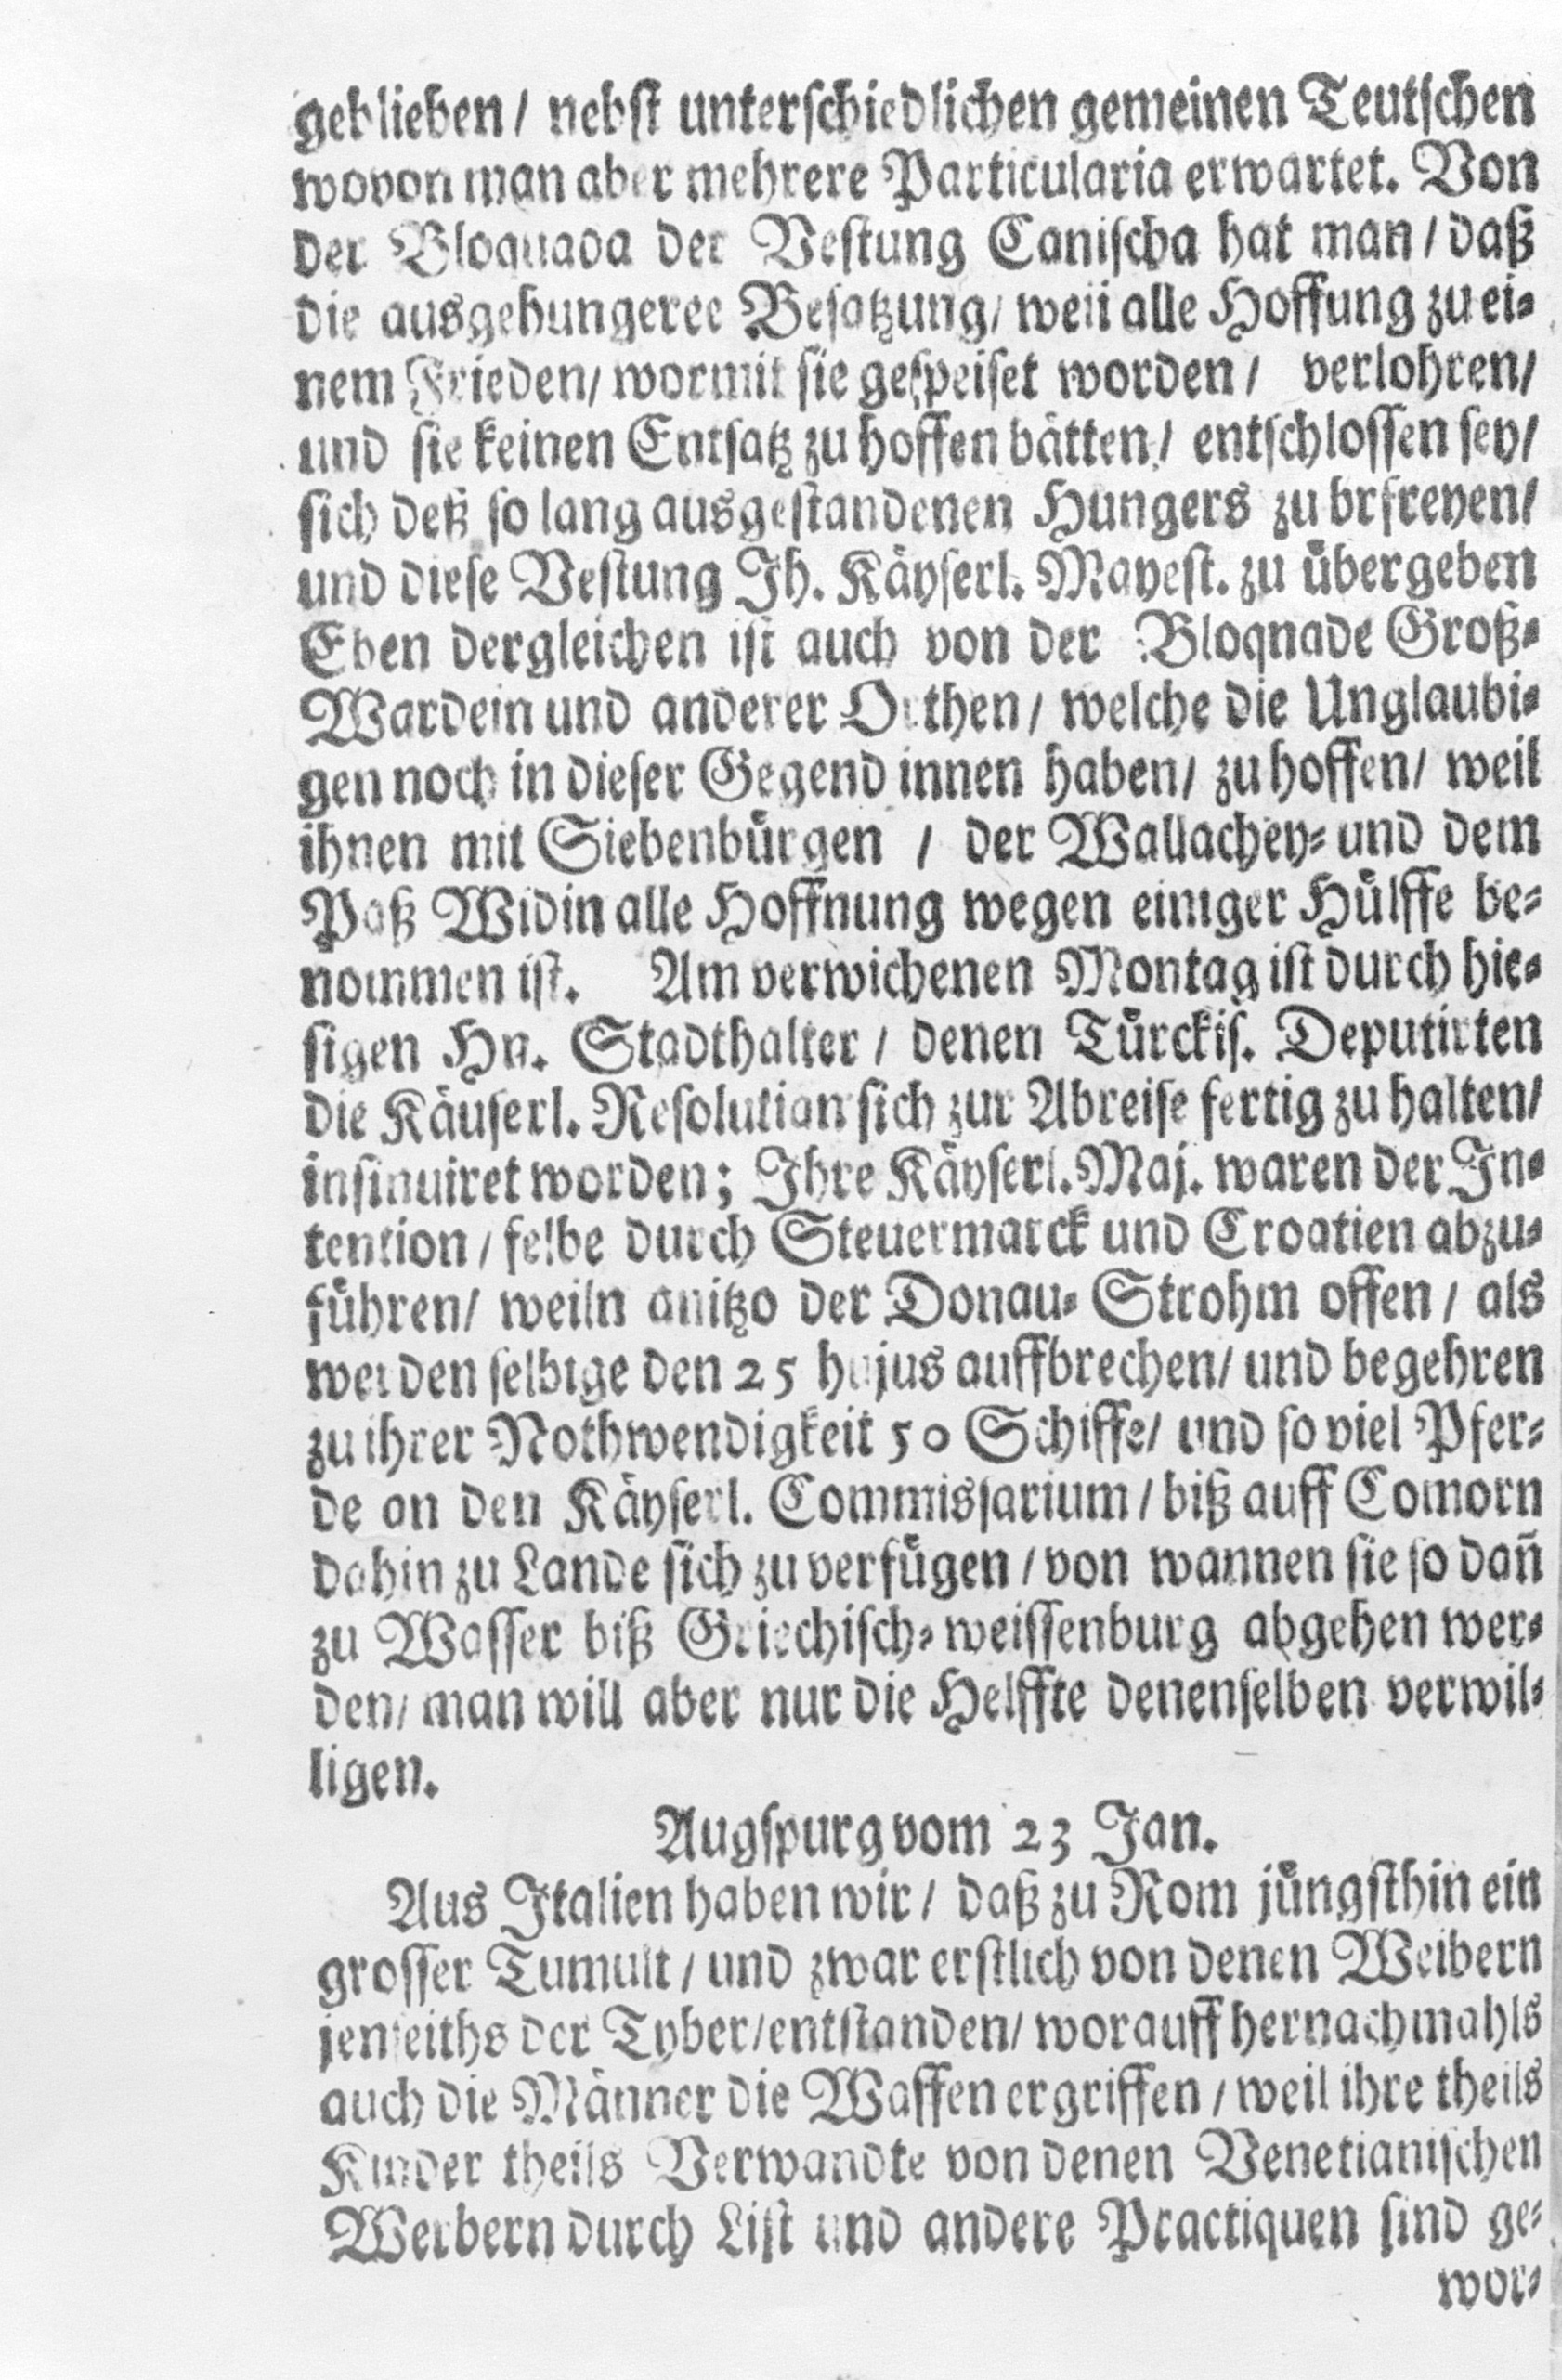 geblieben / nebst unterschiedlichen gemeinen Teutschen
wovon man aber mehrere Particularia erwartet. Von
der Bloquada der Vestung Canischa hat man / daß
die ausgehungeree Besatzung / weil alle Hoffung zu ei-
nem Frieden / wormit sie gespeiset worden / verlohren /
und sie keinen Entsatz zu hoffen hätten / entschlossen sey /
sich deß so lang ausgestandenen Hungers zu brfreyen /
und diese Vestung Ih. Käyserl. Mayest. zu übergeben
Eben dergleichen ist auch von der Bloqnade Groß-
Wardein und anderer Orthen / welche die Unglaubi-
gen noch in dieser Gegend innen haben / zu hoffen / weil
ihnen mit Siebenbürgen / der Wallachey- und dem
Paß Widin alle Hoffnung wegen einiger Hülffe be-
nommen ist. Am verwichenen Montag ist durch hie-
sigen Hn. Stadthalter / denen Türckis. Deputirten
die Käuserl. Resolutian sich zur Abreise fertig zu halten /
insinuiret worden; Ihre Käyserl. Maj. waren der In-
tention / felbe durch Steuermarck und Croatien abzu-
führen / weiln anitzo der Donau- Strohm offen / als
werden selbige den 25 hujus auffbrechen / und begehren
zu ihrer Nothwendigkeit 50 Schiffe / und so viel Pfer-
de an den Käyserl. Commissarium / biß auff Comorn
dahin zu Lande sich zu verfügen / von wannen sie so dañ
zu Wasser biß Griechisch-weissenburg abgehen wer-
den / man will aber nur die Helffte denenselben verwil-
ligen.
Augspurg vom 23 Jan.
Aus Italien haben wir / daß zu Rom jüngsthin ein
grosser Tumult / und zwar erstlich von denen Weibern
jenseiths der Tyber / entstanden / worauff hernachmahls
auch die Männer die Waffen ergriffen / weil ihre theils
Kinder theils Verwandte von denen Venetianischen
Werbern durch List und andere Practiquen sind ge-
wor-